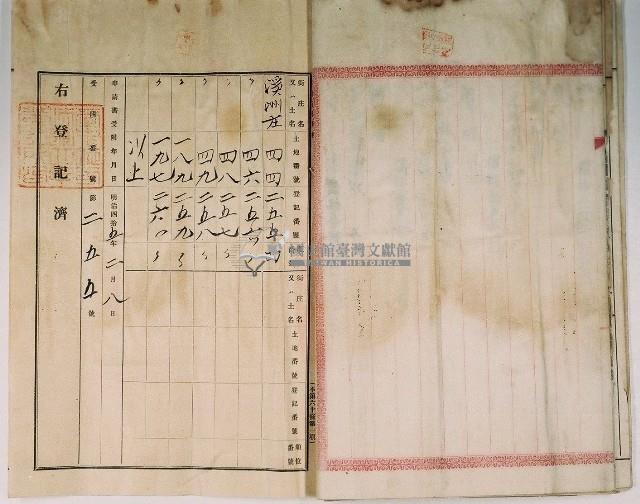 街庄名又ハ土名 土地番號 登記番號 順位番號 街庄名又ハ土名 土地番號 登記番號 順位番號
溪州庄 四四 二五五 四
〃 四六 二五六 〃
〃 四八 二五七 〃
〃 四九 二五八 〃
〃 一八九 二五九 〃
〃 一九七 二六〇 〃
以上
申請書受附年月日 明治四拾五年二月八日
受附番號 第二五五號
右登記濟
國史館臺灣文獻館
TAIWAN HISTORICA